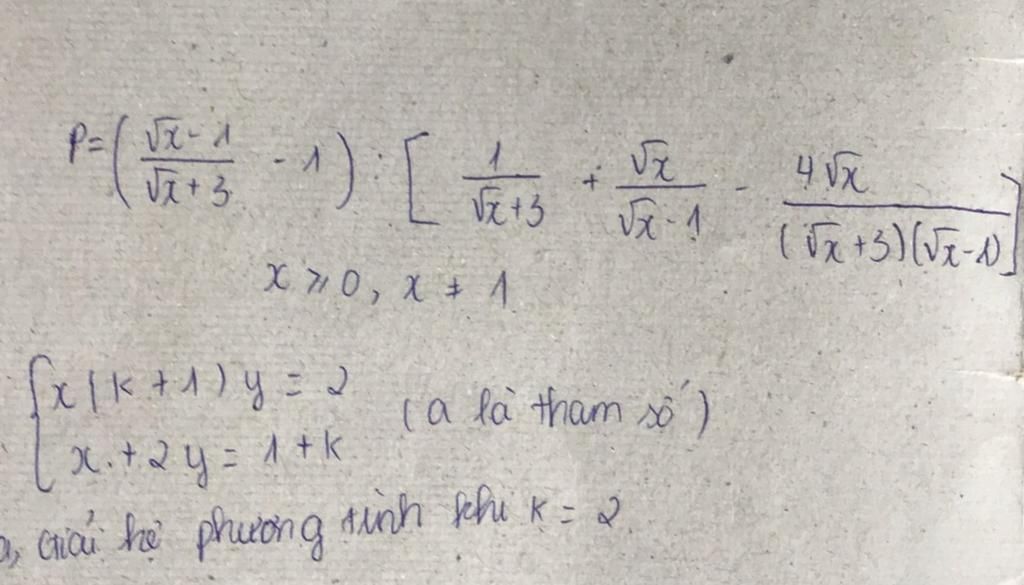 P = ( (√x - 1)/(√x + 3) - 1 ) : [ 1/(√x + 3) + √x/(√x - 1) - 4√x/((√x + 3)(√x - 1)) ]
x ≥ 0, x ≠ 1
{ x (k + 1) y = 2 (a là tham số)
x + 2y = 1 + k
a, Giải hệ phương trình khi k = 2